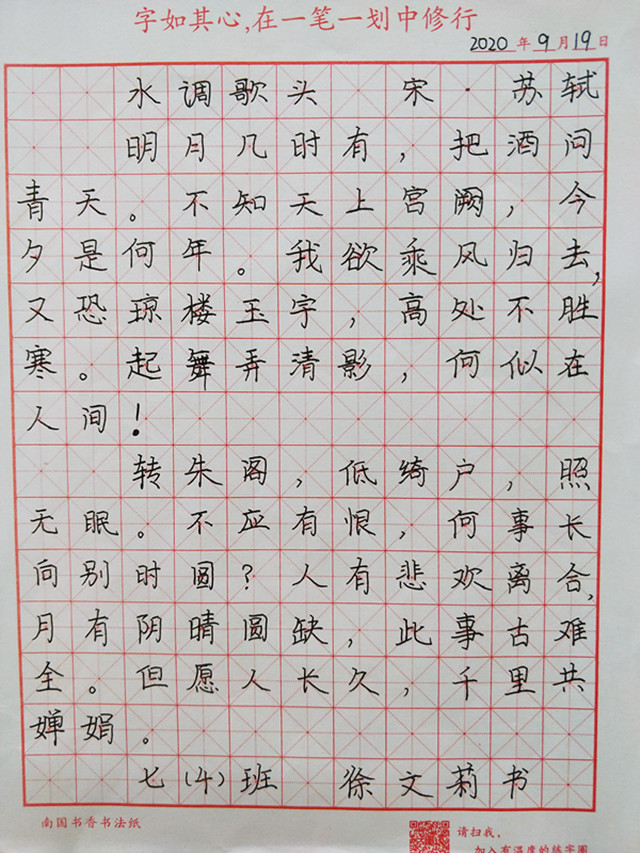 字如其心,在一笔一划中修行
2020年9月19日
水调歌头 宋·苏轼
明月几时有，把酒问
青天。不知天上宫阙，今
夕是何年。我欲乘风归去，
又恐琼楼玉宇，高处不胜
寒。起舞弄清影，何似在
人间！
转朱阁，低绮户，照
无眠。不应有恨，何事长
向别时圆？人有悲欢离合，
月有阴晴圆缺，此事古难
全。但愿人长久，千里共
婵娟。
七(4)班 徐文莉书
南国书香书法纸
请扫我，
加入有温度的练字圈